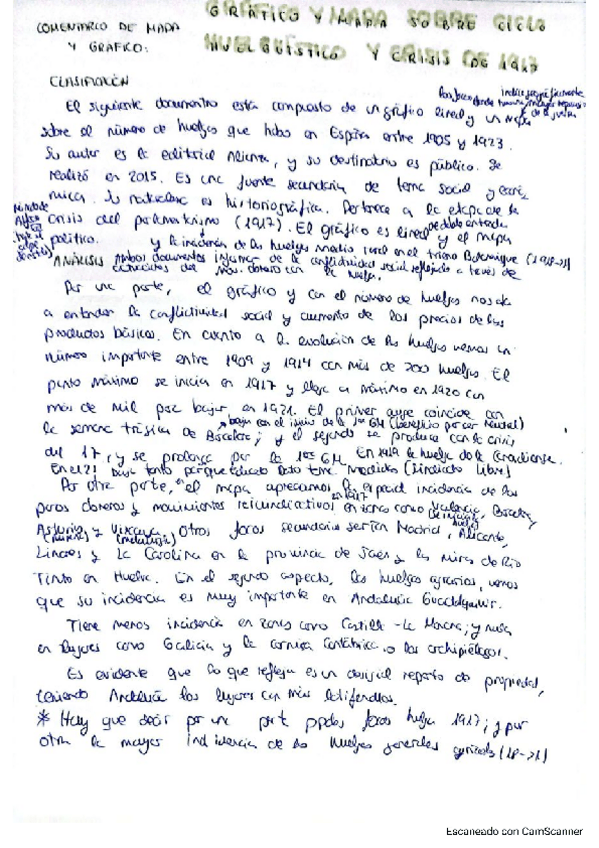 COMENTARIO DE MAPA
Y GRÁFICO:
GRÁFICO Y MAPA SOBRE CICLO
HUELGUÍSTICO Y CRISIS DE 1917
CLASIFICACIÓN
El siguiente documento está compuesto de un gráfico lineal y un mapa
sobre el número de huelgas que hubo en España entre 1905 y 1923.
Su autor es la editorial Alianza, y su destinatario es público. Se
realizó en 2015. Es una fuente secundaria de tema social y econó-
mica. Su naturaleza es historiográfica. Pertenece a la etapa de la
crisis del parlamentarismo (1917). El gráfico es lineal y el mapa
político.
y la incidencia de las huelgas medio rural en el trienio Bolchevique (1918-21)
ANÁLISIS Ambos documentos informan de la conflictividad social reflejada a través de
Por una parte, el gráfico y con el número de huelgas nos da
a entender la conflictividad social y aumento de los precios de los
productos básicos. En cuanto a la evolución de las huelgas vemos un
número importante entre 1909 y 1914 con más de 200 huelgas. El
punto máximo se inicia en 1917 y llega a máximo en 1920 con
más de mil para bajar en 1921. El primer auge coincide con
la semana trágica de Barcelona; y el segundo se produce con la crisis
del 17, y se prolonga por la 1ra GM En 1919 la huelga de la Canadiense.
En el 21 (Sindicato Libre)
Por otra parte, en el mapa apreciamos la especial incidencia de los
paros obreros y movimientos reivindicativos en zonas como Valencia, Barcelona,
Asturias y Vizcaya. Otros focos secundarios serían Madrid, Alicante,
Linares y La Carolina en la provincia de Jaén y las minas de Río
Tinto en Huelva. En el segundo aspecto, las huelgas agrarias, vemos
que su incidencia es muy importante en Andalucía Guadalquivir.
Tiene menos incidencia en zonas como Castilla-La Mancha; y nula
en lugares como Galicia y la cornisa Cantábrica o los archipiélagos.
Es evidente que lo que reflejan es un desigual reparto de propiedad,
teniendo Andalucía los lugares con más latifundios.
* Hay que decir por una parte ppales focos huelga 1917; y por
otra la mayor incidencia de las huelgas generales agrícolas (18-21)
Escaneado con CamScanner